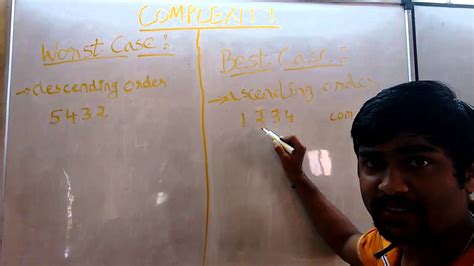 COMPLEXITY
Worst Case:
→descending order
5 4 3 2
Best Case:
→ascending order
1 2 3 4 com